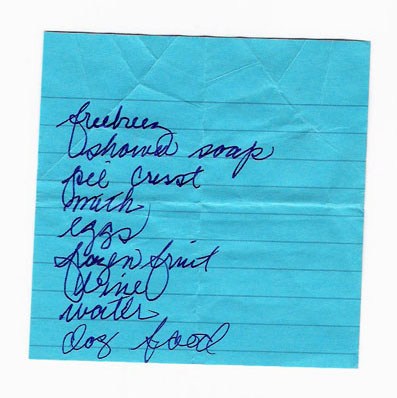 freebreez
shower soap
pie crust
milk
eggs
frozen fruit
wine
water
dog food